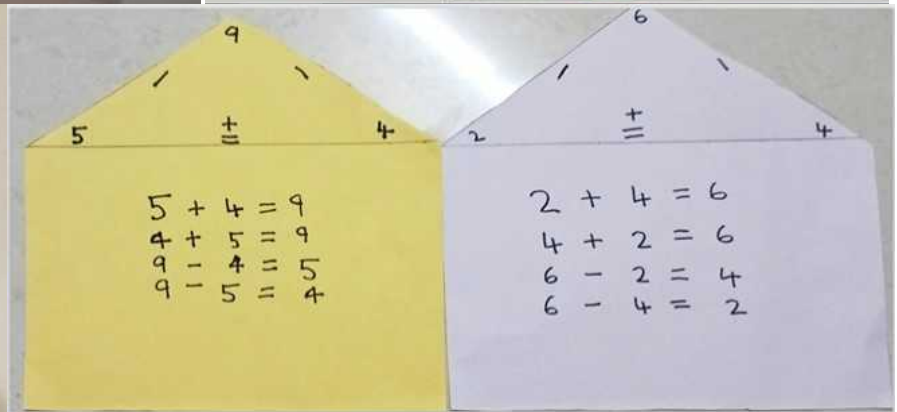 9
− −
5 + = 4
5 + 4 = 9
4 + 5 = 9
9 − 4 = 5
9 − 5 = 4
6
− −
2 + = 4
2 + 4 = 6
4 + 2 = 6
6 − 2 = 4
6 − 4 = 2